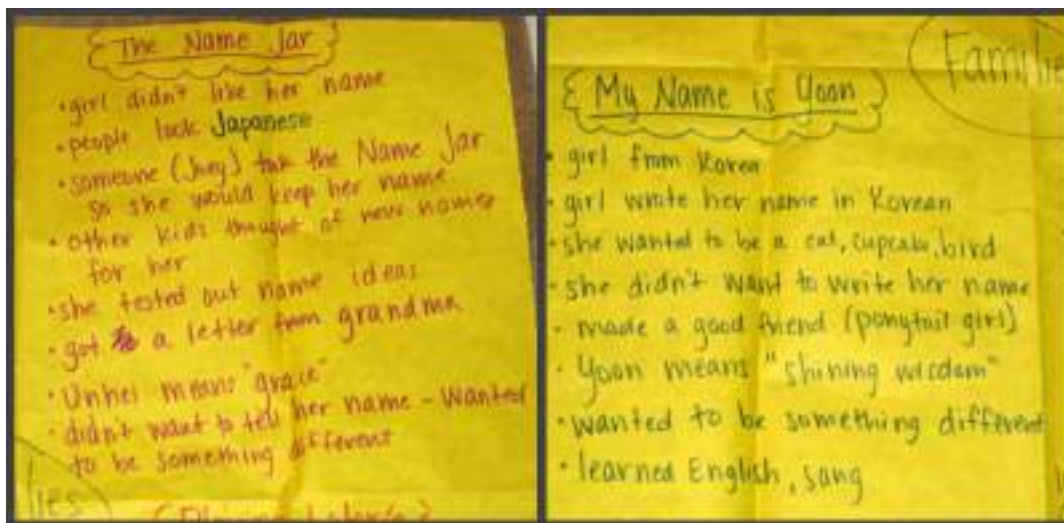 The Name Jar
• girl didn't like her name
• people look Japanese
• someone (Joey) tak the Name Jar
so she would keep her name
• other kids thought of new names
for her
• she tested out name ideas
• got a letter from grandma
• Unhei means "grace"
• didn't want to tell her name - Wanted
to be something different
lies
Families
My Name is Yoon
• girl from Korea
• girl wrote her name in Korean
• she wanted to be a cat, cupcake, bird
• she didn't want to write her name
• made a good friend (ponytail girl)
• Yoon means "shining wisdom"
• wanted to be something different
• learned English, sang